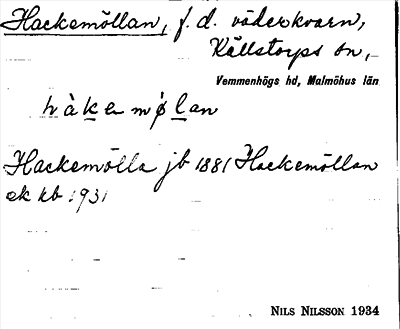 Hackemöllan, f. d. väderkvarn,
Källstorps sn,
Vemmenhögs hd, Malmöhus län
hàkemø̀lan
Hackemölla jb 1881 Hackemöllan
ek kb 1931
NILS NILSSON 1934